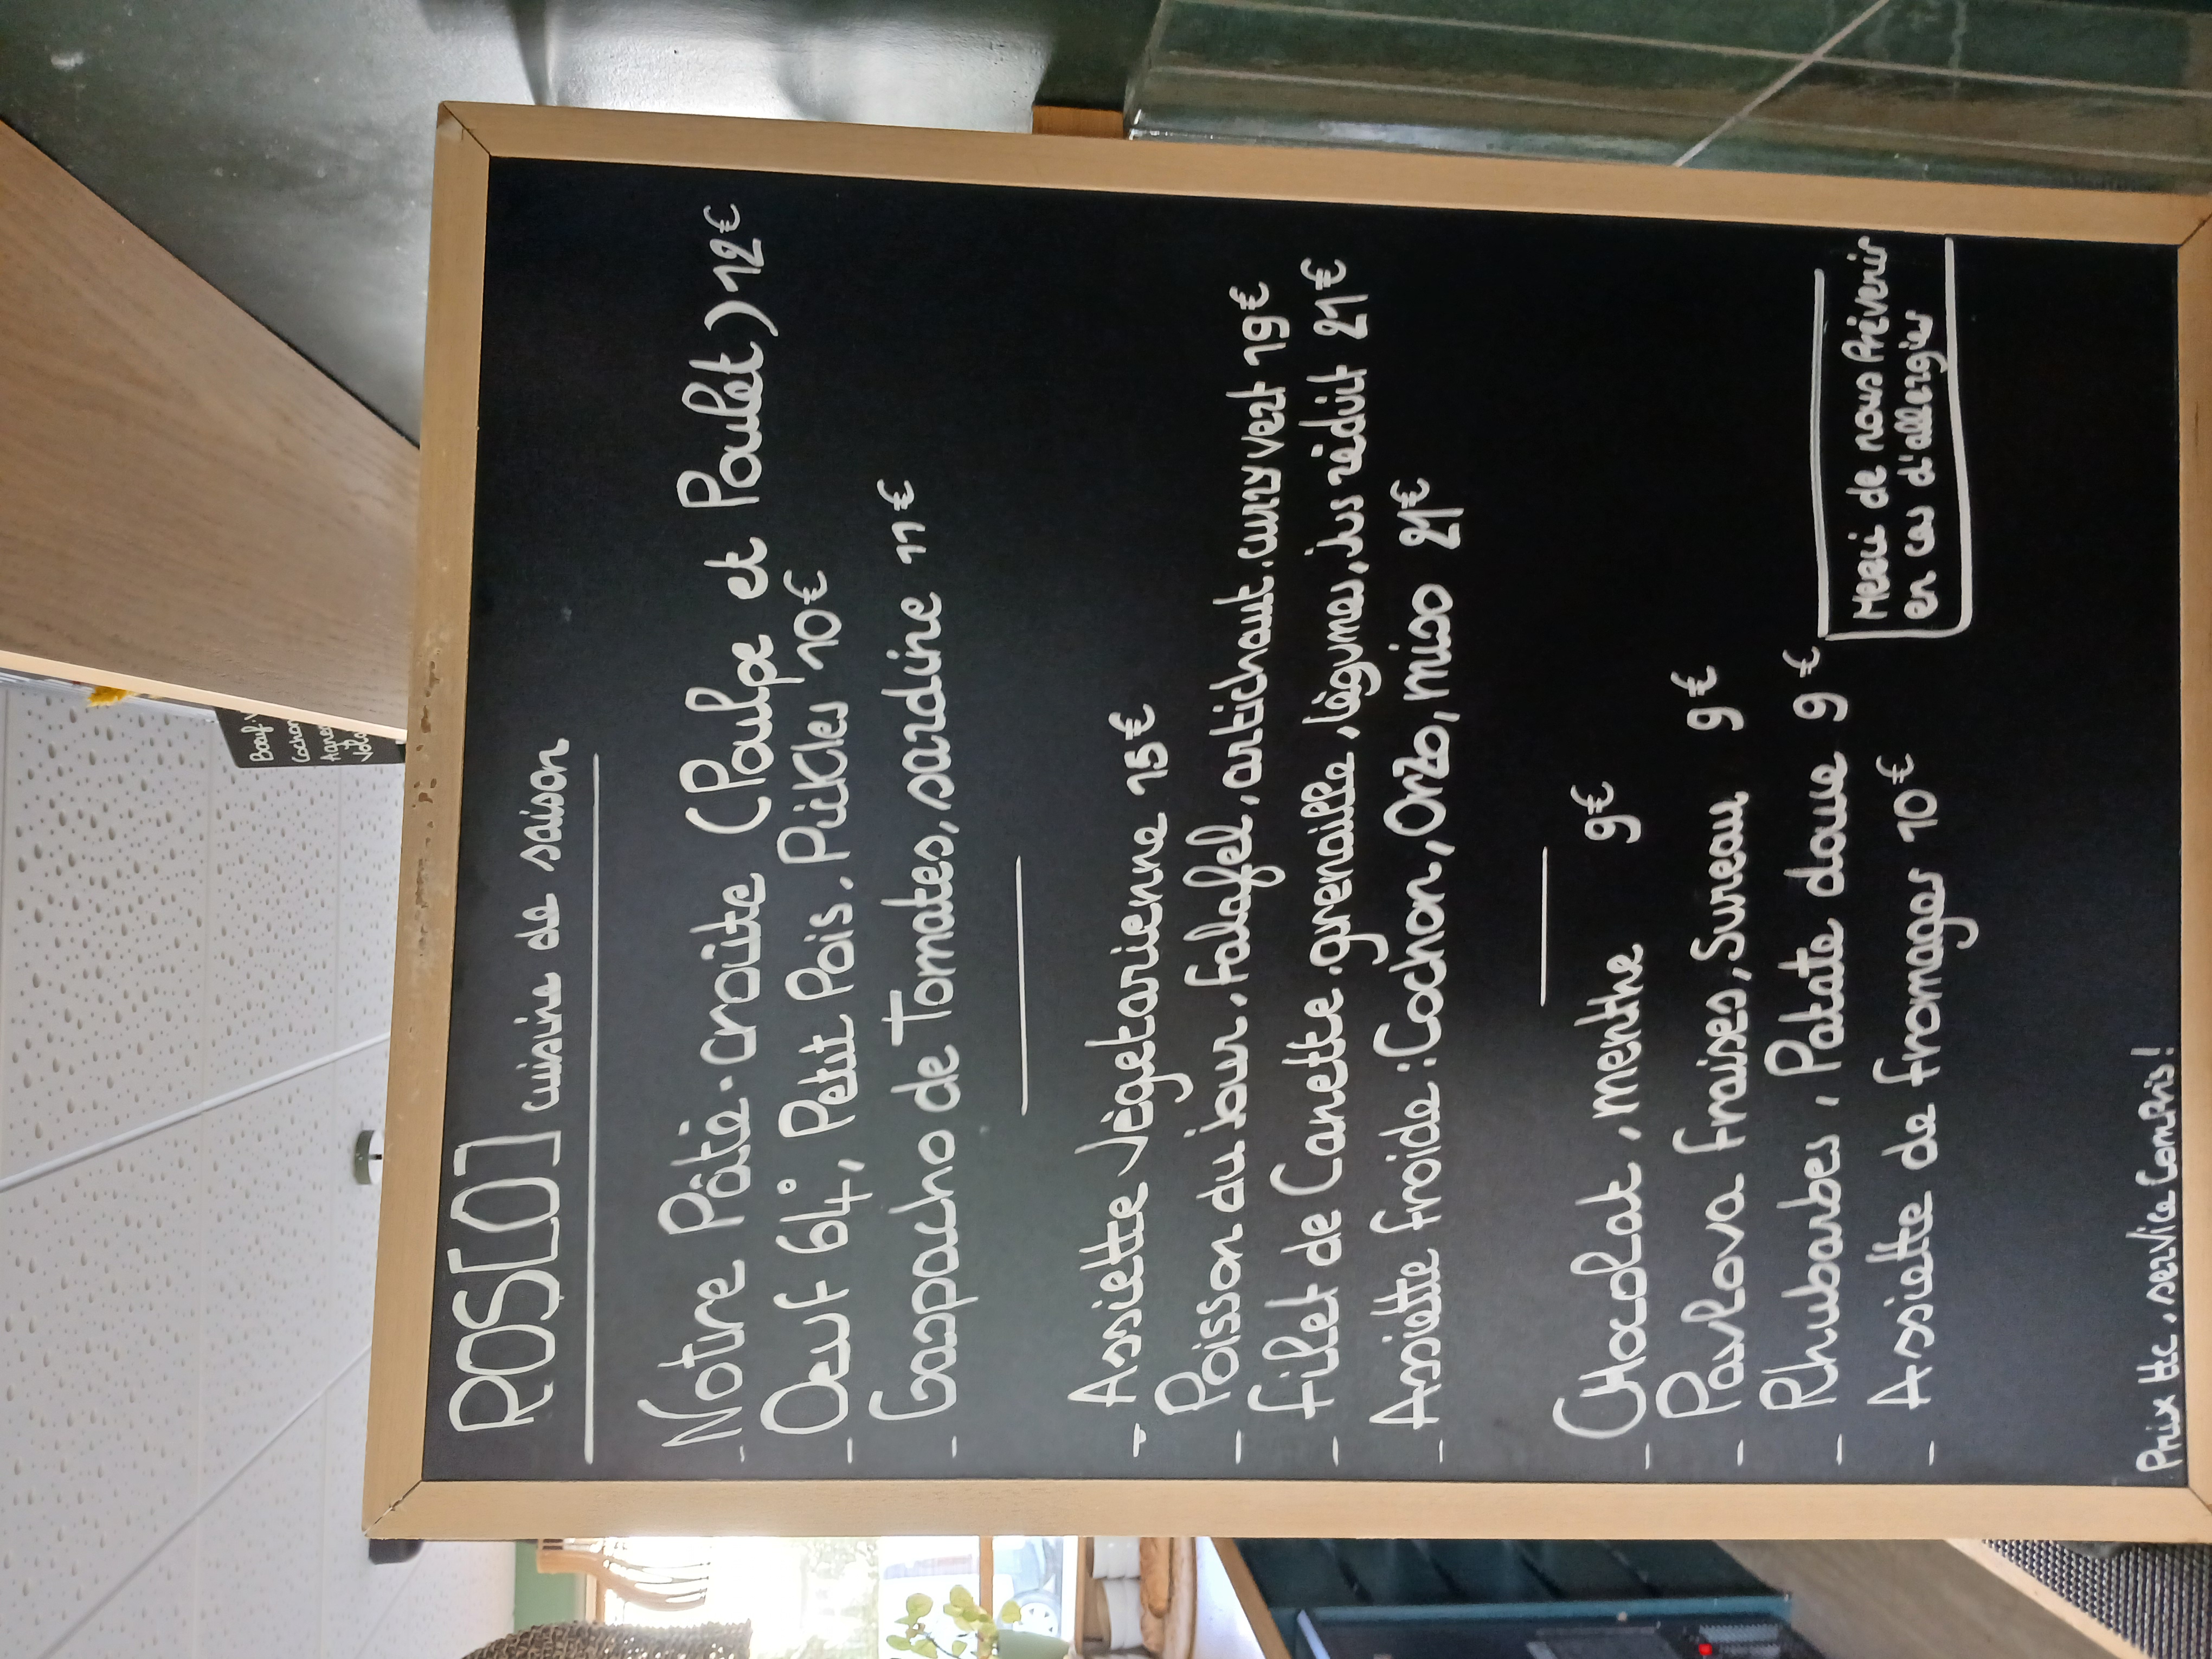 ROS[O] cuisine de saison
- Notre Pâté-croûte (Poulpe et Poulet) 12€
- Oeuf 64°, Petit Pois, Pickles 10€
- Gazpacho de Tomates, sardine 11€
- Assiette Végétarienne 15€
- Poisson du jour, falafel, artichaut, curry vert 19€
- Filet de Canette, grenaille, légumes, jus réduit 21€
- Assiette froide : Cochon, Orzo, miso 21€
- Chocolat, menthe 9€
- Pavlova fraises, Sureau 9€
- Rhubarbes, Patate douce 9€
- Assiette de fromages 10€
Merci de nous Prévenir
en cas d'allergies
Prix ttc, service Compris!
Boeuf :
Cochon
Agneau